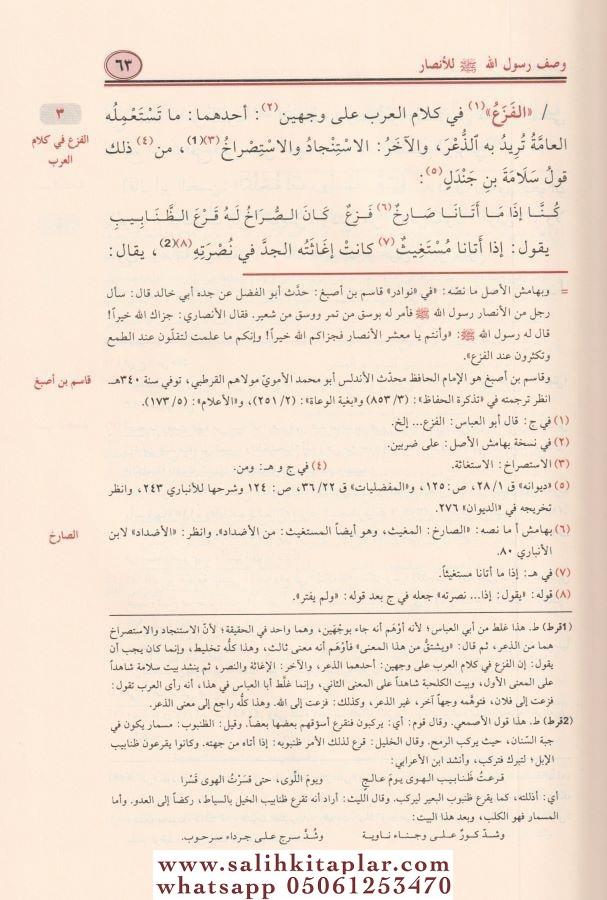 وصف رسول الله ﷺ للأنصار
٦٣
٣
الفزع في كلام
العرب
/ «الفَزَعُ»(١) في كلام العرب على وجهين(٢): أحدهما: ما تَسْتَعْمِلُه
العامَّةُ تُرِيدُ به الذُّعْرَ، والآخَرُ: الاسْتِنْجادُ والاسْتِصْراخُ(٣)(1)، من(٤) ذلك
قولُ سَلَامَةَ بنِ جَنْدَلٍ(٥):
كُنَّا إذَا مَا أَتَانَا صَارِخٌ(٦) فَزِعٌ كَانَ الصُّرَاخُ لَهُ قَرْعَ الظَّنَابِيبِ
يقول: إذا أَتانا مُسْتَغِيثٌ(٧) كانتْ إغاثَتُه الجدَّ في نُصْرَتِهِ(٨)(2)، يقال:
= وبهامش الأصل ما نصّه: «في «نوادر» قاسم بن أصبغ: حدّث أبو الفضل عن جده أبي خالد قال: سأل
رجل من الأنصار رسول الله ﷺ فأمر له بوسق من تمر ووسق من شعير. فقال الأنصاري: جزاك الله خيراً!
قال له رسول الله ﷺ: «وأنتم يا معشر الأنصار فجزاكم الله خيراً! وإنكم ما علمت لتقلّون عند الطمع
وتكثرون عند الفزع».
قاسم بن أصبغ
وقاسم بن أصبغ هو الإمام الحافظ محدّث الأندلس أبو محمد الأمويّ مولاهم القرطبي، توفي سنة ٣٤٠هـ.
انظر ترجمته في «تذكرة الحفاظ»: (٣/ ٨٥٣) و«بغية الوعاة»: (٢/ ٢٥١)، و«الأعلام»: (٥/ ١٧٣).
(١) في ج: قال أبو العباس: الفزع... إلخ.
(٢) في نسخة بهامش الأصل: على ضربين.
(٣) الاستصراخ: الاستغاثة. (٤) في ج و هـ: ومن.
(٥) «ديوانه» ق ٢٨/١، ص: ١٢٥، و«المفضليات» ق ٣٦/٢٢، ص: ١٢٤ وشرحها للأنباري ٢٤٣، وانظر
تخريجه في «الديوان» ٢٧٦.
الصارخ
(٦) بهامش أ ما نصه: «الصارخ: المغيث، وهو أيضاً المستغيث: من الأضداد». وانظر: «الأضداد» لابن
الأنباري ٨٠.
(٧) في هـ: إذا ما أتانا مستغيثاً.
(٨) قوله: «يقول: إذا... نصرته» جعله في ج بعد قوله: «ولم يفتر».
(1قرط) ط. هذا غلط من أبي العباس؛ لأنه أوْهَم أنه جاء بوجْهَين، وهما واحد في الحقيقة؛ لأنّ الاستنجاد والاستصراخ
هما من الذعر، ثم قال: «ويشتقُّ من هذا المعنى» فأوْهَم أنه معنى ثالث، وهذا كلُّه تخليط، وإنما كان يجب أن
يقول: إن الفزع في كلام العرب على وجهين: أحدهما الذعر، والآخر: الإغاثة والنصر، ثم ينشد بيت سلامة شاهداً
على المعنى الأول، وبيت الكلحبة شاهداً على المعنى الثاني، وإنما غلَّط أبا العباس في هذا، أنه رأى العرب تقول:
فزعت إلى فلان، فتوهَّمه وجهاً آخر، غير الذعر، وكذلك: فزعت إلى الله. وهذا كله راجع إلى معنى الذعر.
(2قرط) ط. هذا قول الأصمعي. وقال قوم: أي: يركبون فنقرع أسوُقهم بعضها بعضاً. وقيل: الظنبوب: مسمار يكون في
جبة السِّنان، حيث يركب الرمح. وقال الخليل: قرع لذلك الأمر ظنبوبه: إذا أتاه من جهته. وكانوا يقرعون ظنابيب
الإبل؛ لتبرك فتركب، وأنشد ابن الأعرابي:
قرعتُ ظنابيب الهوى يومَ عالجٍ ويومَ اللّوى، حتى قسَرْتُ الهوى قسْرا
أي: أذللته، كما يقرع ظنبوب البعير ليركب. وقال الليث: أراد أنه تقرع ظنابيب الخيل بالسياط، ركضاً إلى العدو. وأما
المسمار فهو الكلب، وبعد هذا البيت:
وشدّ كورٌ على وجناء ناوية وشُدّ سرج على جرداء سرحوب.
www.salihkitaplar.com
whatsapp 05061253470